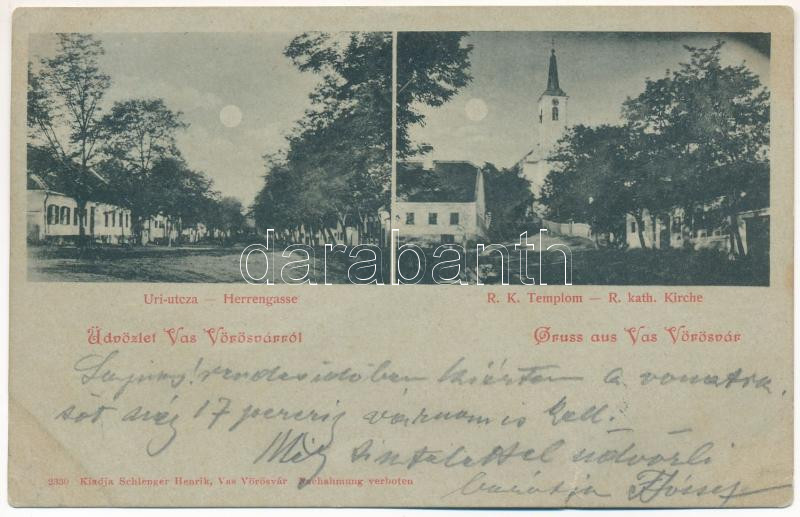 Uri-utcza — Herrengasse
R. K. Templom — R. kath. Kirche
darabanth
Üdvözlet Vas Vörösvárról
Gruss aus Vas Vörösvár
rendes időben kiértem a vonatra,
sőt még 17 perczig várnom is kell.
Mély tisztelettel üdvözli
barátja József
2330 Kiadja Schlenger Henrik, Vas Vörösvár Nachahmung verboten